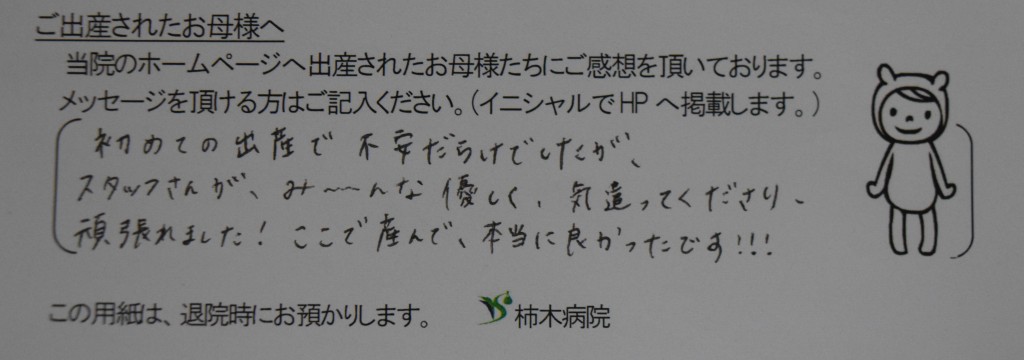 ご出産されたお母様へ
当院のホームページへ出産されたお母様たちにご感想を頂いております。
メッセージを頂ける方はご記入ください。(イニシャルでHPへ掲載します。)
初めての出産で不安だらけでしたが、
スタッフさんが、み〜〜んな優しく、気遣ってくださり、
頑張れました!ここで産んで、本当に良かったです!!!
この用紙は、退院時にお預かりします。 柿木病院